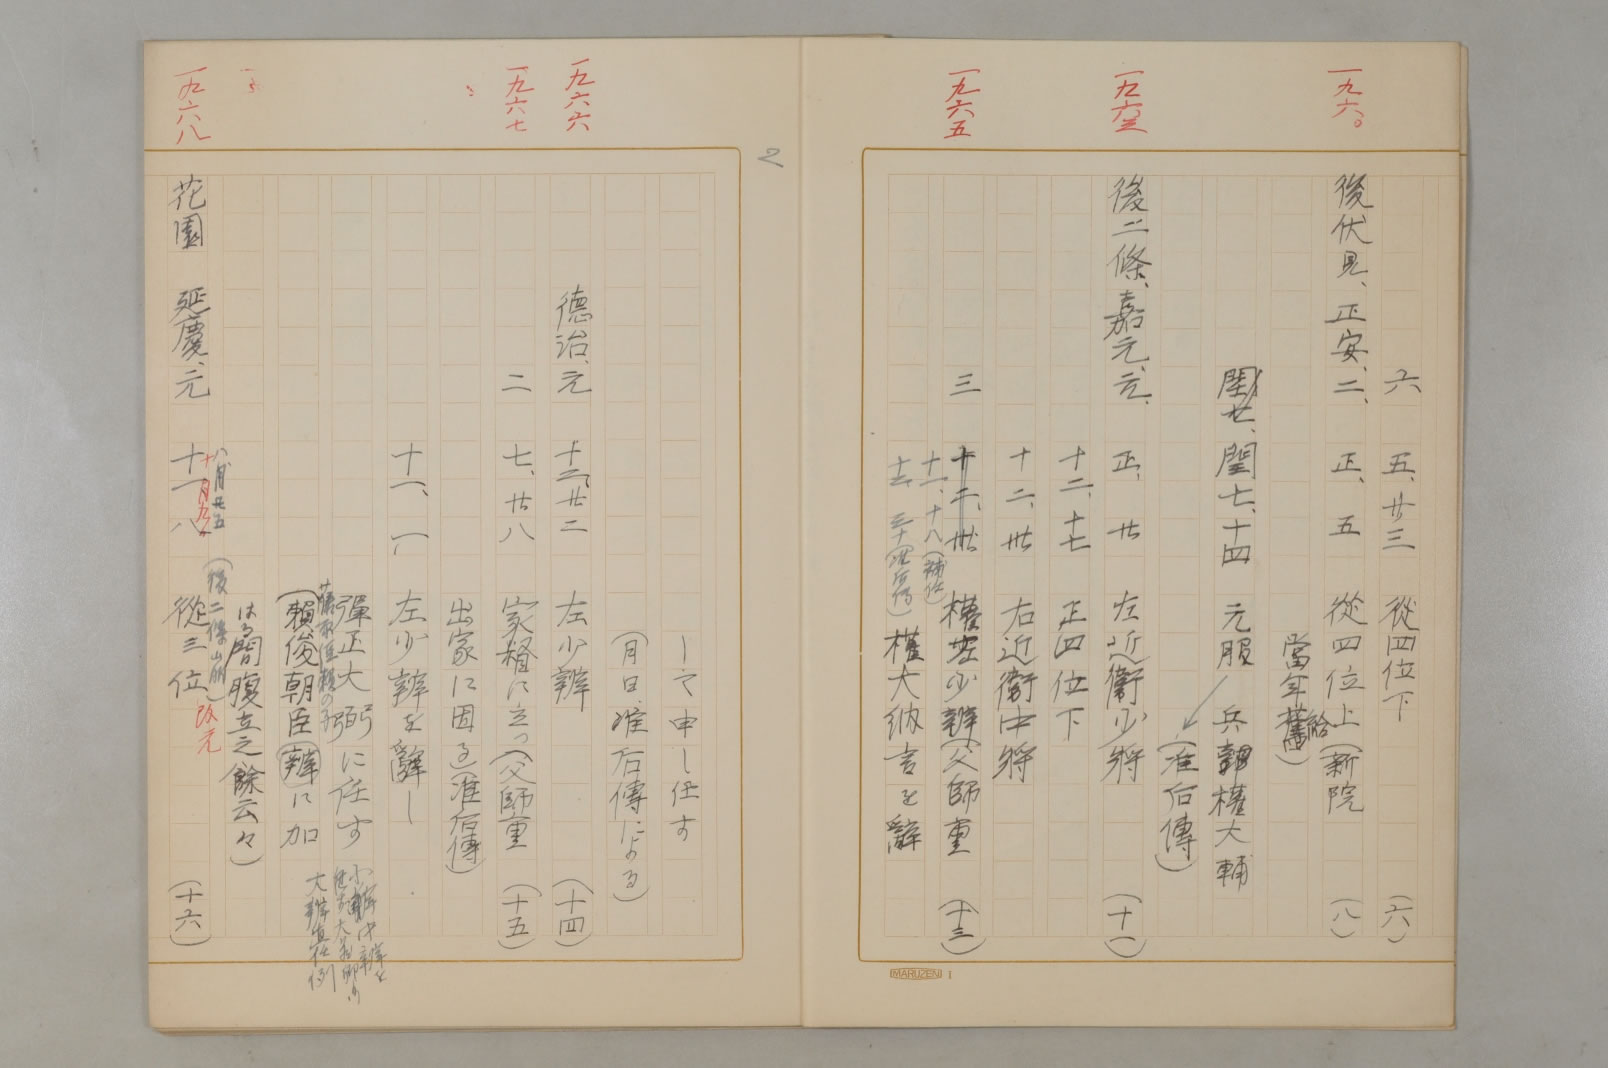 六 五、廿三 從四位下 (六)
一九六〇
後伏見、正安、二、正、五 從四位上(新院 (八)
當年舊給)
閏七、閏七、十四 元服 兵部權大輔
(准后傳)
一九六三
後二條、嘉元、元、正、廿 左近衛少將 (十一)
十二、十七 正四位下
十二、卅 右近衛中將
一九六五
三 十二、卅 權左少辨(父師重 (十三)
十一、十八
十二、三十(准后傳) 權大納言を辭
MARUZEN 1
2
して申し任す
(月日准后傳による)
一九六六
德治、元 十二、廿二 左少辨 (十四)
一九六七
二 七、廿八 家督に立つ(父師重 (十五)
出家に因る)(准后傳)
十一、一 左少辨を辭し
彈正大弼に任す
(賴俊朝臣辨に加
はる間腹立之餘云々)
八月廿五 (後二條崩)
一九六八
花園 延慶、元 十一、八 從三位 改元 (十六)